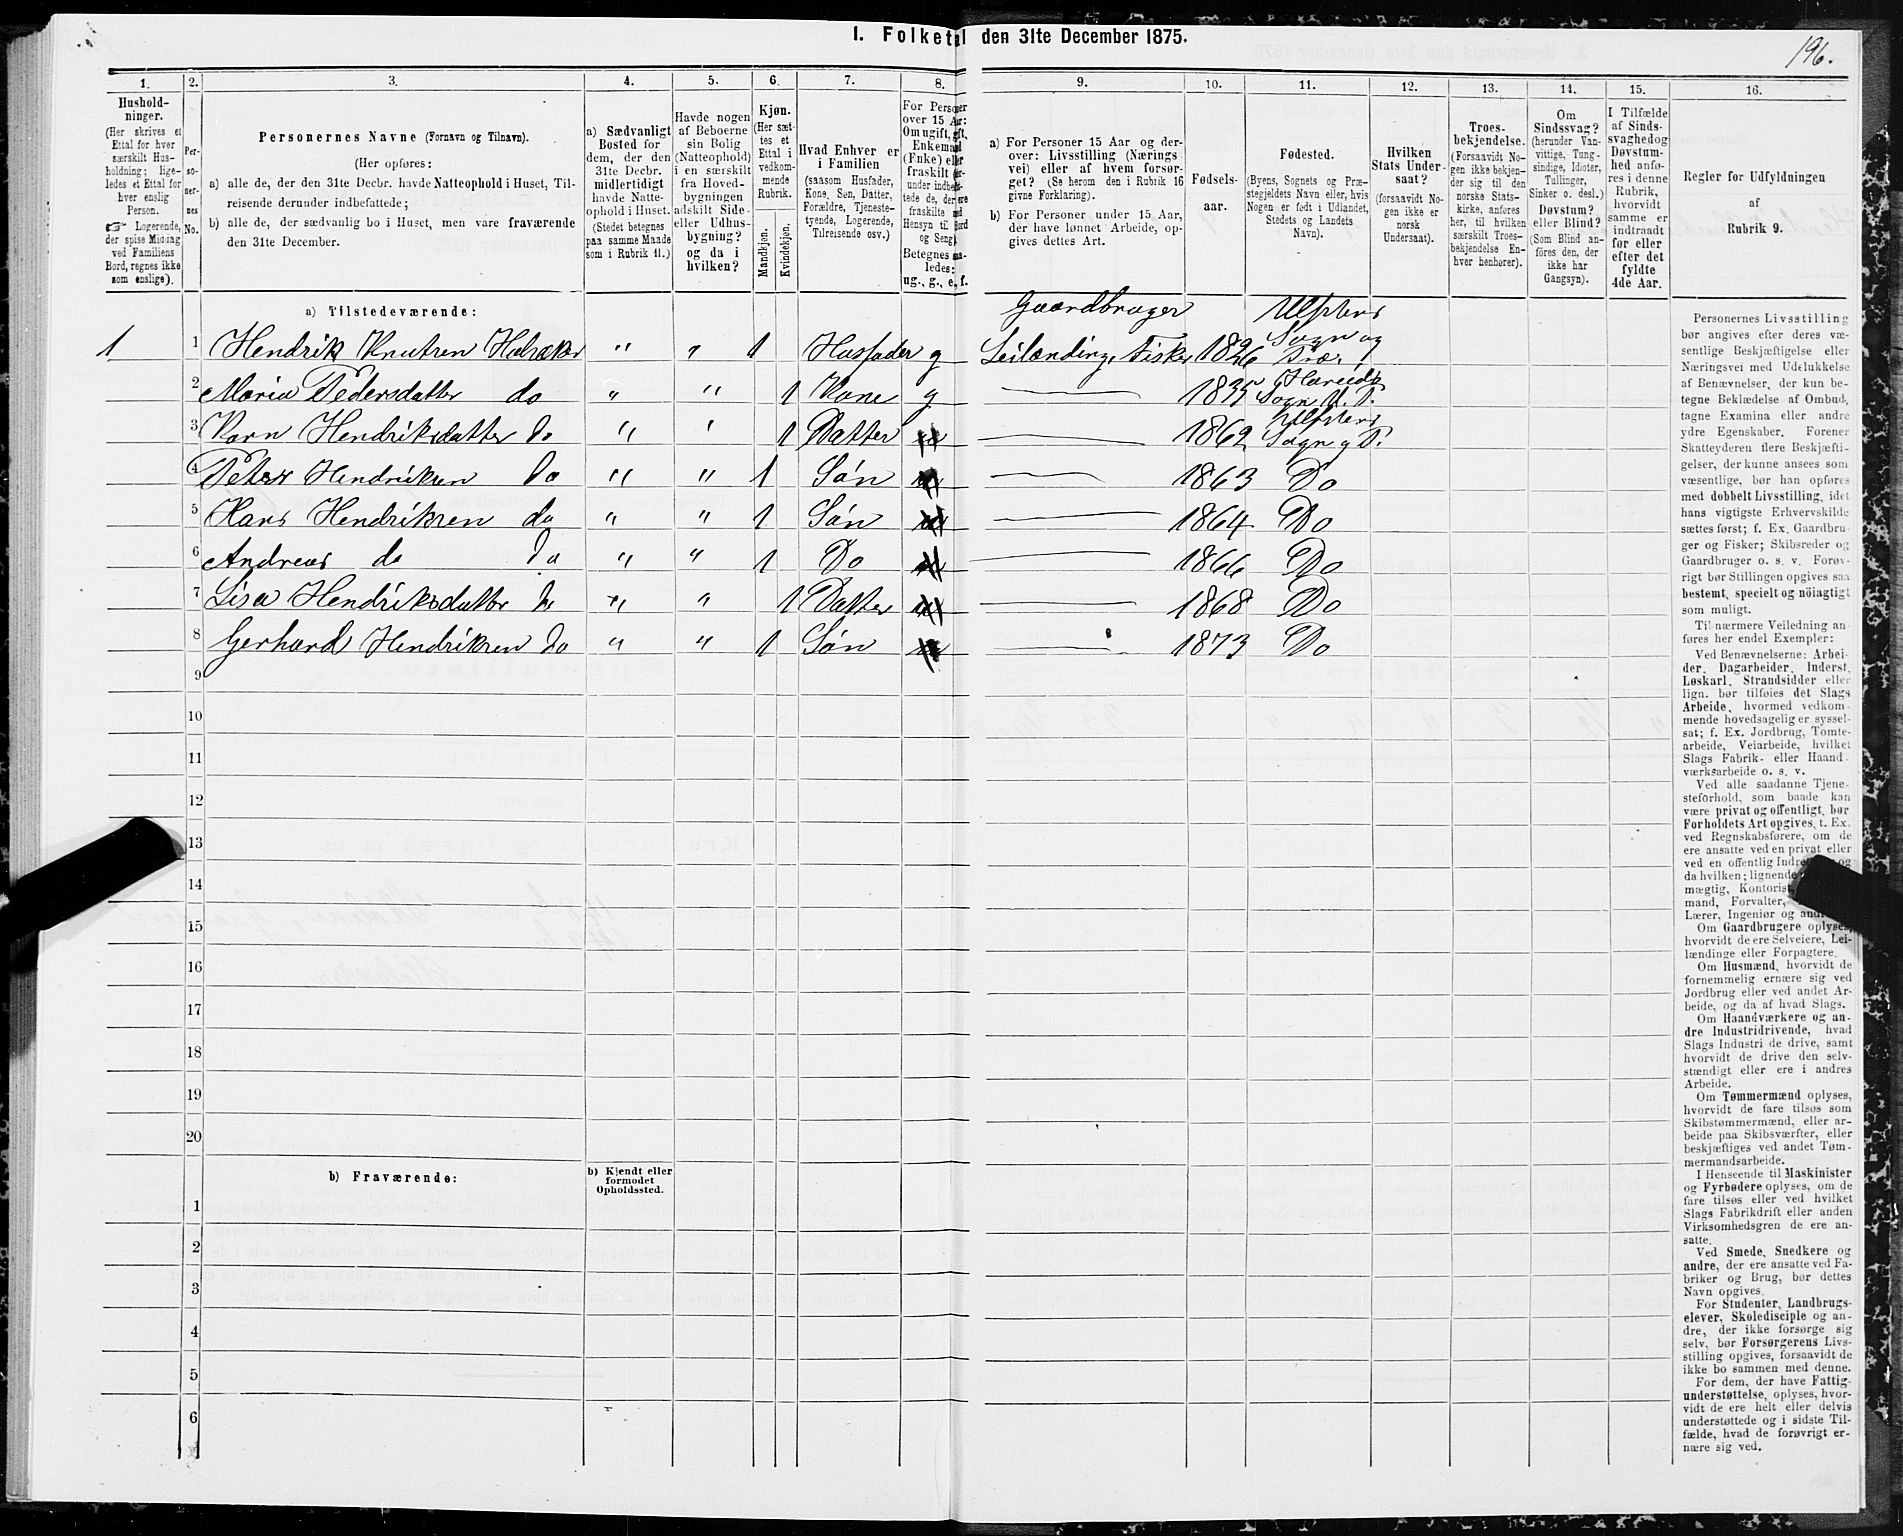 I. Folketal den 31te December 1875.
196.
1.
Hushold-
ninger.
(Her skrives et
Ettal for hver
særskilt Hus-
holdning; lige-
ledes et Ettal for
hver enslig
Person.
☞ Logerende,
der spise Middag
ved Familiens
Bord, regnes ikke
som enslige).
2.
Per-
so-
ner-
nes
No.
3.
Personernes Navne (Fornavn og Tilnavn).
(Her opføres:
a) alle de, der den 31te Decbr. havde Natteophold i Huset, Til-
reisende derunder indbefattede;
b) alle de, der sædvanlig bo i Huset, men vare fraværende
den 31te December.
4.
a) Sædvanligt
Bosted for
dem, der den
31te Decbr.
midlertidigt
havde Natte-
ophold i Huset.
(Stedet betegnes
paa samme Maade
som i Rubrik 11.)
5.
Havde nogen
af Beboerne
sin Bolig
(Natteophold)
i en særskilt
fra Hoved-
bygningen
adskilt Side-
eller Udhus-
bygning?
og da i
hvilken?
6.
Kjøn.
(Her sæt-
tes et
Ettal i
vedkom-
mende
Rubrik.
Mandkjøn.
Kvindekjøn.
7.
Hvad Enhver er
i Familien
(saasom Husfader,
Kone, Søn, Datter,
Forældre, Tjeneste-
tyende, Logerende,
Tilreisende osv.)
8.
For Personer
over 15 Aar:
Om ugift, gift,
Enkemand
(Enke) eller
fraskilt
ug., g., e., f.
9.
a) For Personer 15 Aar og der-
over: Livsstilling (Nærings
vei) eller af hvem forsør-
get? (Se herom den i Rubrik 16
givne Forklaring).
b) For Personer under 15 Aar,
der have lønnet Arbeide, op-
gives dettes Art.
10.
Fødsels-
aar.
11.
Fødested.
(Byens, Sognets og Præ-
stegjeldets Navn eller, hvis
Nogen er født i Udlandet,
Stedets og Landets
Navn).
12.
Hvilken
Stats Under-
saat?
(forsaavidt No-
gen ikke er
norsk
Undersaat).
13.
Troes-
bekjendelse.
(Forsaavidt No-
gen ikke bekjen-
der sig til den
norske Stats-
kirke, anføres
her, til hvilken
særskilt Troes-
bekjendelse En-
hver henhører).
14.
Om
Sindssvag?
(herunder Van-
vittige, Tung-
sindige, Idioter,
Tullinger,
Sinker o. desl.)
Døvstum?
eller Blind?
(Som Blind an-
føres den, der
ikke har
Gangsyn).
15.
I Tilfælde
af Sinds-
svaghed og
Døvstum-
hed anfø-
res i denne
Rubrik,
hvorvidt
samme er
indtraadt
før eller
efter det
fyldte
4de Aar.
16.
Regler for Udfyldningen
af
Rubrik 9.
a) Tilstedeværende:
1 1 Hendrik Knutsen Halsaker " " 1 Husfader g Gaardbruger Leilending, Fisker 1826 Ulfstens Sogn og Præ.
2 Maria Pedersdatter do " " 1 Kone g 1835 Hareids Sogn U. P.
3 Karn Hendriksdatter Do " " 1 Datter 1862 Ulfstens Sogn og P.
4 Peter Hendriksen Do " " 1 Søn 1863 Do
5 Hans Hendriksen do " " 1 Søn 1864 Do
6 Andreas do Do " " 1 Do 1866 Do
7 Lisa Hendriksdatter Do " " 1 Datter 1868 Do
8 Gerhard Hendriksen Do " " 1 Søn 1873 Do
9
10
11
12
13
14
15
16
17
18
19
20
b) Fraværende:
b) Kjendt eller
formodet
Opholdssted.
1
2
3
4
5
6
Personernes Livsstilling
bør angives efter deres væ-
sentlige Beskjæftigelse eller
Næringsvei med Udelukkelse
af Benævnelser, der kun be-
tegne Beklædelse af Ombud,
tagne Examina eller andre
ydre Egenskaber. Forener
Skatteyderen flere Beskjæfti-
gelser, der kunne ansees som
væsentlige, bør han opføres
med dobbelt Livsstilling, idet
hans vigtigste Erhvervskilde
sættes først; f. Ex. Gaardbru-
ger og Fisker; Skibsreder og
Gaardbruger o. s. v. Forøv-
rigt bør Stillingen opgives saa
bestemt, specielt og nøiagtigt
som muligt.
Til nærmere Veiledning an-
føres her endel Exempler:
Ved Benævnelserne: Arbei-
der, Dagarbeider, Inderst,
Løskarl, Strandsidder eller
lign. bør tilføies det Slags
Arbeide, hvormed vedkom-
mende hovedsagelig er syssel-
sat; f. Ex. Jordbrug, Tomte-
arbeide, Veiarbeide, hvilket
Slags Fabrik- eller Haand
værksarbeide o. s. v.
Ved alle saadanne Tjene-
steforhold, som baade kan
være privat og offentligt, bør
Forholdets Art opgives, t. Ex.
ved Regnskabsførere, om de
ere ansatte ved en privat eller
ved en offentlig
da hvilken; lignende
mægtig, Kontorist,
mand, Forvalter,
Lærer, Ingeniør og
Om Gaardbrugere oplyses,
hvorvidt de ere Selveiere, Lei-
lændinge eller Forpagtere.
Om Husmænd, hvorvidt de
fornemmelig ernære sig ved
Jordbrug eller ved andet Ar-
beide, og da af hvad Slags.
Om Haandværkere og an-
dre Industridrivende, hvad
Slags Industri de drive, samt
hvorvidt de drive den selv-
stændigt eller ere i andres
Arbeide.
Om Tømmermænd oplyses,
hvorvidt de fare tilsøs som
Skibstømmermænd, eller ar-
beide paa Skibsværfter, eller
beskjæftiges ved andet Tøm-
mermandsarbeide.
I Henseende til Maskinister
og Fyrbødere oplyses, om de
fare tilsøs eller ved hvilket
Slags Fabrikdrift eller anden
Virksomhedsgren de ere an-
satte.
Ved Smede, Snedkere og
andre, der ere ansatte ved Fa-
briker og Brug, bør dettes
Navn opgives.
For Studenter, Landbrugs-
elever, Skoledisciple og an-
dre, der ikke forsørge sig
selv, bør Forsørgerens Livs-
stilling opgives, forsaavidt de
ikke bo sammen med denne.
For dem, der have Fattig-
understøttelse, oplyses, hvor-
vidt de ere helt eller delvis
understøttede og i sidste Til-
fælde, hvad de forøvrigt er-
nære sig ved.